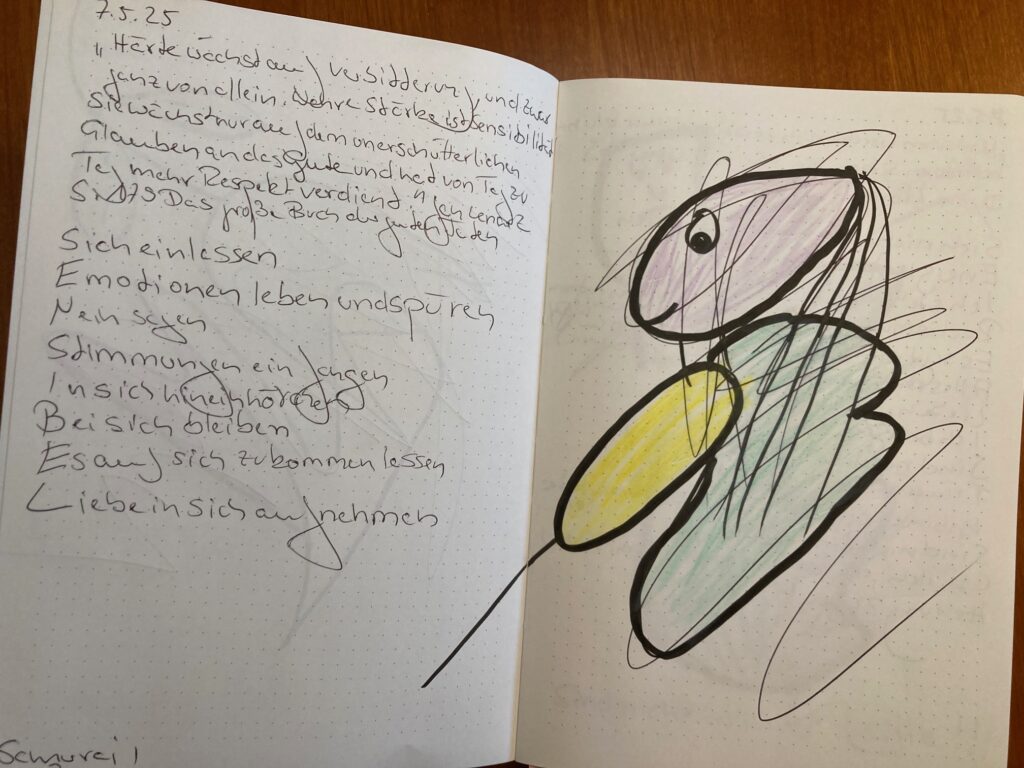 7.5.25
"Härte wächst auf Verbitterung, und zwar
ganz von allein. Wahre Stärke ist Sensibilität
Sie wächst nur auf dem unerschütterlichen
Glauben an das Gute und hat von Tag zu
Tag mehr Respekt verdient."
S. Das große Buch der guten
Sich einlassen
Emotionen leben und spüren
Nein sagen
Stimmungen einfangen
In sich hineinhorchen
Bei sich bleiben
Es auf sich zukommen lassen
Liebe in sich aufnehmen